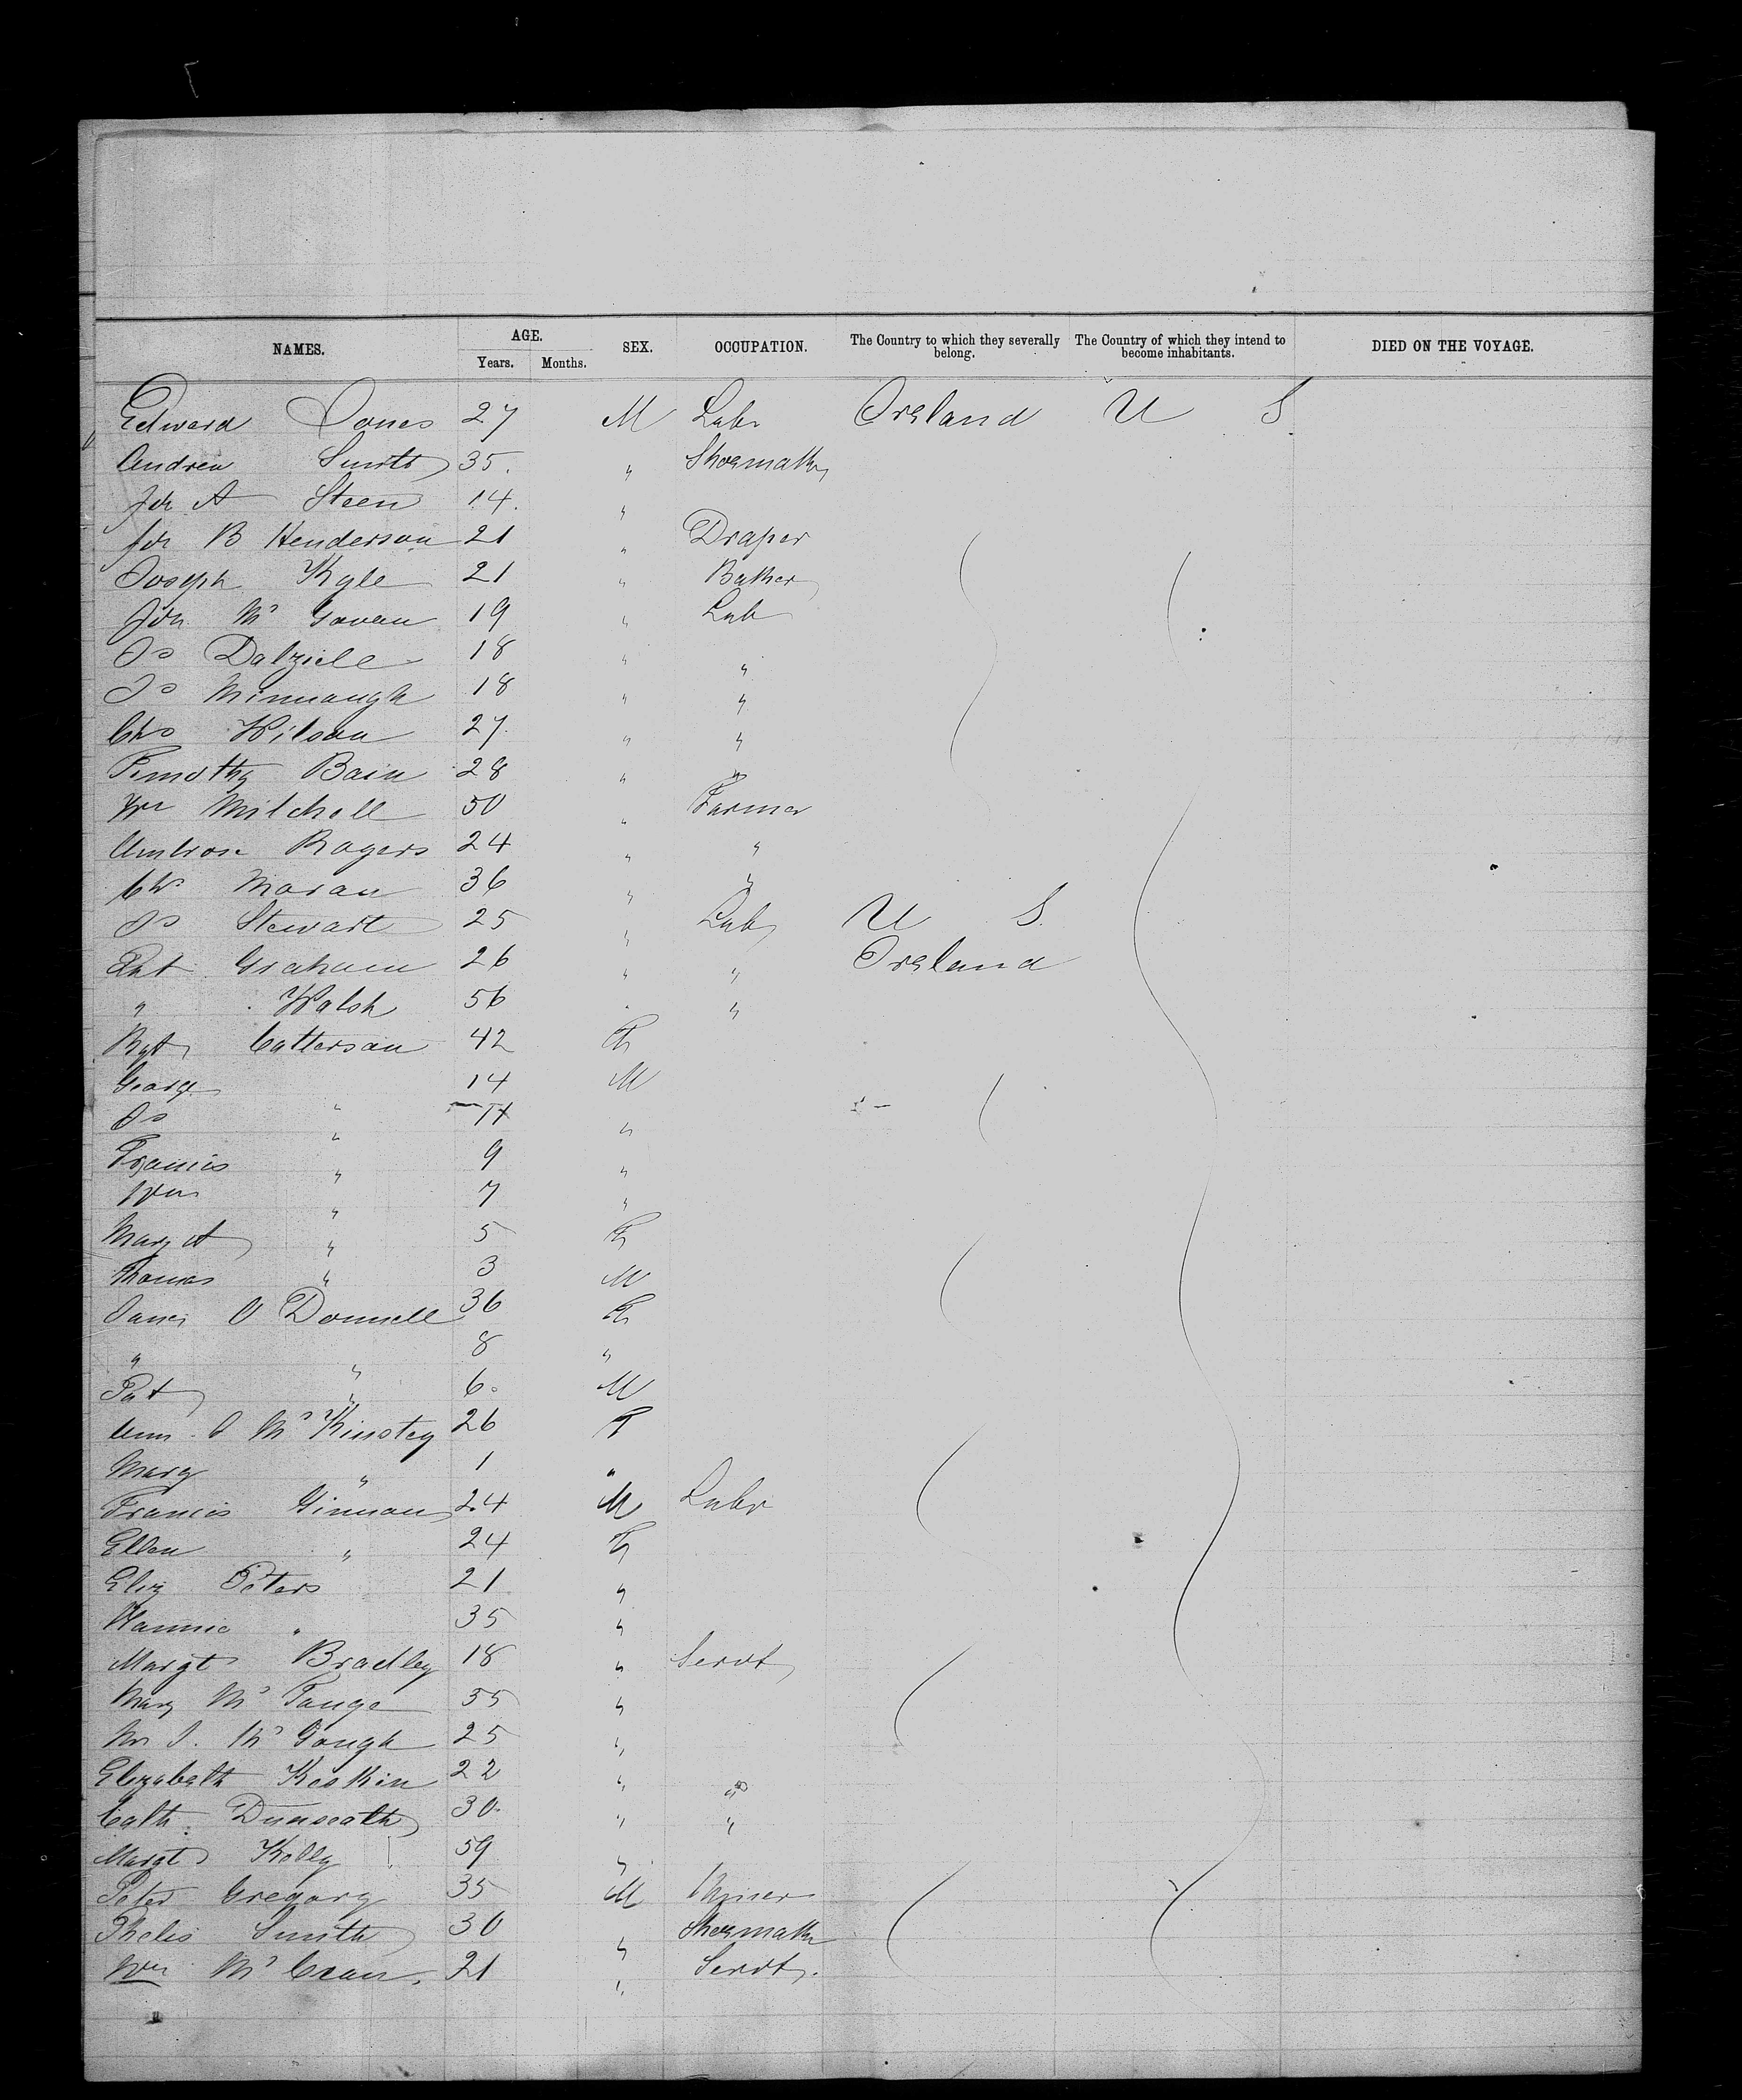 NAMES. AGE. SEX. OCCUPATION. The Country to which they severally belong. The Country of which they intend to become inhabitants. DIED ON THE VOYAGE.
Years. Months.
Edward Jones 27 M Labr Ireland U S
Andrew Smith 35. " Shoemaker
Jn A Steen 14. "
Jn B Henderson 21 " Draper
Joseph Kyle 21 " Baker
Jn Mc Gowan 19 " Lab
Js Dalziell 18 " "
Js Minnaugh 18 " "
Chs Wilson 27. " "
Timothy Bain 28 " "
Wm Mitchell 50 " Farmer
Ambrose Rogers 24 " "
Chs Moran 36 " "
Js Stewart 25 " Lab U S.
Pat Graham 26 " " Ireland
" Walsh 56 " "
Bgt Catterson 42 F
George " 14 M
Js " 11 "
Francis " 9 "
Wm " 7 "
Mary A " 5 F
Thomas " 3 M
Janes O Donnell 36 F
" " 8 "
Pat " 6. M
Ann J McKinstey 26 F
Mary " 1 "
Francis Ginnan 24 M Labr
Ellen " 24 F
Eliz Peters 21 "
Nannie " 35 "
Margt Bradley 18 " Servt
Mary Mc 35 "
J. Mc Gough 25 "
Elizabeth Keskin 22 " "
Cath Dunseath 30. " "
Margt Kelly 59 "
Peter Gregory 35 M Miner
Smith 30 " Shoemaker
Wm Mc Cran. 21 " Servt.